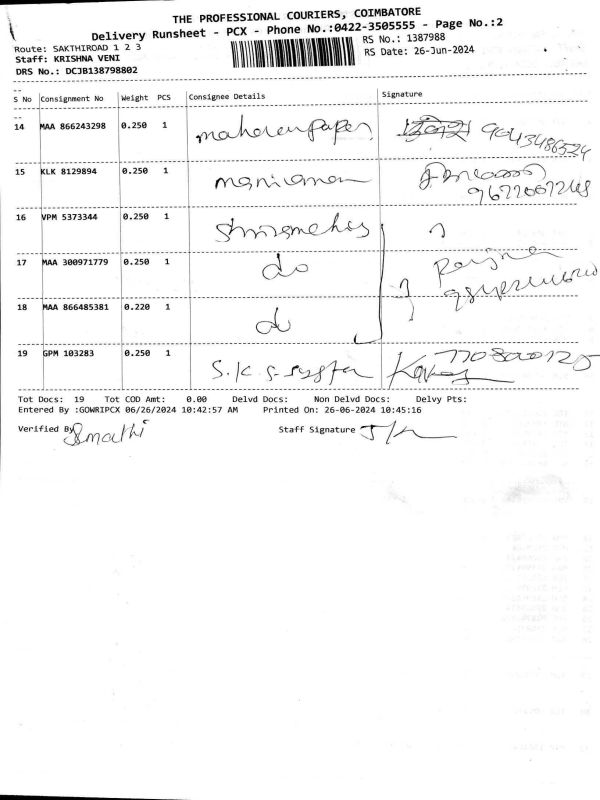 THE PROFESSIONAL COURIERS, COIMBATORE
Delivery Runsheet - PCX - Phone No.:0422-3505555 - Page No.:2
Route: SAKTHIROAD 1 2 3
RS No.: 1387988
Staff: KRISHNA VENI
RS Date: 26-Jun-2024
DRS No.: DCJB138798802
S No Consignment No Weight PCS Consignee Details Signature
14 MAA 866243298 0.250 1 9043486524
15 KLK 8129894 0.250 1
16 VPM 5373344 0.250 1
17 MAA 300971779 0.250 1 do
18 MAA 866485381 0.220 1 do
19 GPM 103283 0.250 1 S.K.S
Tot Docs: 19 Tot COD Amt: 0.00 Delvd Docs: Non Delvd Docs: Delvy Pts:
Entered By :GOWRIPCX 06/26/2024 10:42:57 AM Printed On: 26-06-2024 10:45:16
Verified By Staff Signature